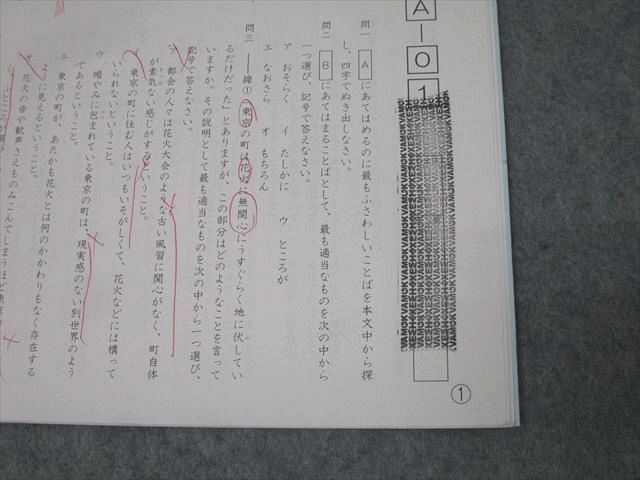 A―01
問一 Aにあてはめるのに最もふさわしいことばを本文中から探
し、四字でぬき出しなさい。
問二 Bにあてはまることばとして、最も適当なものを次の中から
一つ選び、記号で答えなさい。
ア おそらく イ たしかに ウ ところが
エ なおさら オ もちろん
問三 ――線①「東京の町は花火に無関心にうすぐらく地に伏してい
るだけだった」とありますが、この部分はどのようなことを言って
いますか。その説明として最も適当なものを次の中から一つ選び、
記号で答えなさい。
ア 都会の人々は花火大会のような古い風習に関心がなく、町自体
が素気ない感じがするということ。
イ 東京の町に住む人はいつもいそがしくて、花火などには構って
いられないということ。
ウ 暗やみに包まれている東京の町は、現実感のない別世界のよう
であるということ。
エ 東京の町が、あたかも花火とは何のかかわりもなく存在する
ように見えるということ。
オ 花火の音や歓声さえものみこんでしまうほど東京
①